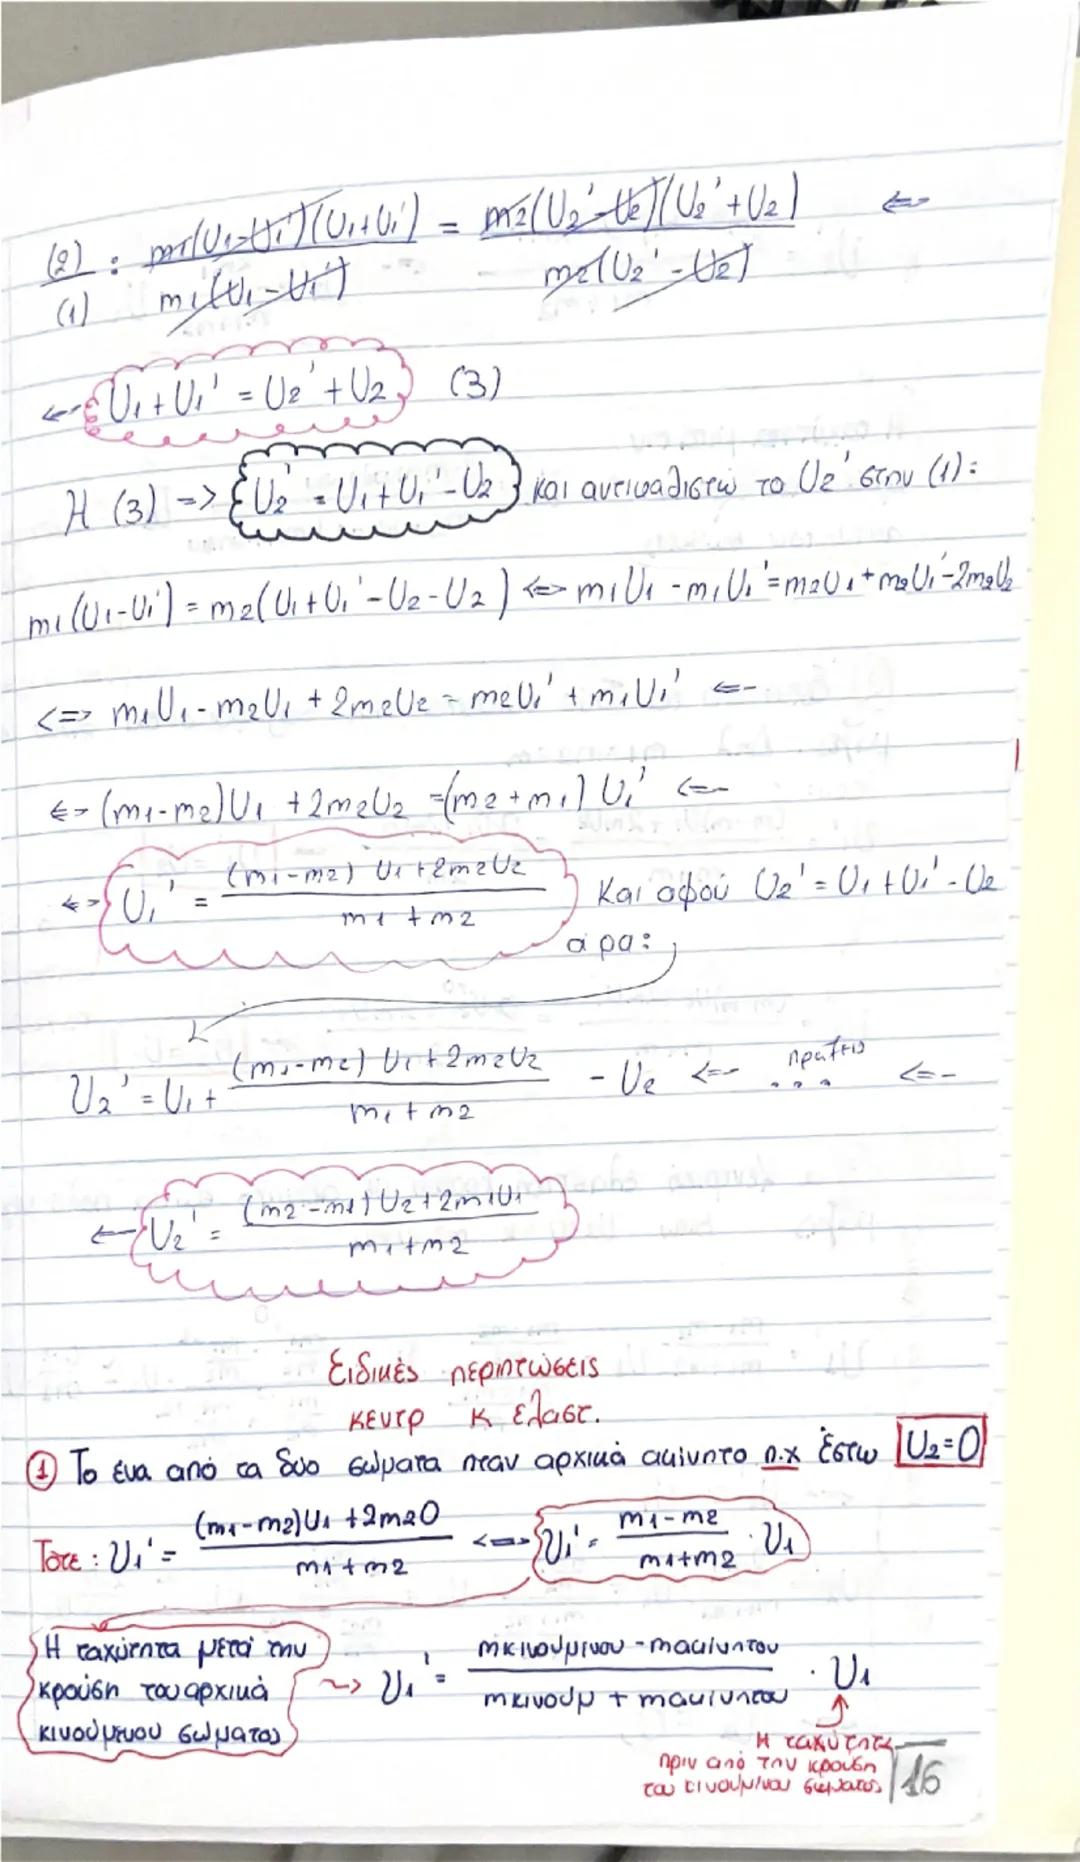 (2)/(1) : m1(U1-U1')(U1+U1') / m1(U1-U1') = m2(U2'-U2)(U2'+U2) / m2(U2'-U2) <=>
<=> U1+U1' = U2'+U2 (3)
Η (3) => U2' = U1+U1'-U2 και αντικαθιστώ το U2' στην (1):
m1(U1-U1') = m2(U1+U1'-U2-U2) <=> m1U1 - m1U1' = m2U1 + m2U1' - 2m2U2
<=> m1U1 - m2U1 + 2m2U2 = m2U1' + m1U1' <=>
<=> (m1-m2)U1 + 2m2U2 = (m2+m1)U1' <=>
<=> U1' = (m1-m2)U1+2m2U2 / m1+m2 Και αφού U2' = U1+U1'-U2
άρα:
U2' = U1 + (m1-m2)U1+2m2U2 / m1+m2 - U2 <=> πράξεις ... <=>
<=> U2' = (m2-m1)U2+2m1U1 / m1+m2
Ειδικές περιπτώσεις
κεντρ κ ελαστ.
① Το ένα από τα δύο σώματα ήταν αρχικά ακίνητο π.χ έστω U2=0
Τότε: U1' = (m1-m2)U1+2m20 / m1+m2 <=> U1' = m1-m2 / m1+m2 · U1
Η ταχύτητα μετά την
κρούση του αρχικά
κινούμενου σώματος
~> U1' = mκινούμενου - mακίνητου / mκινούμ + mακίνητου · U1
Η ταχύτητα
πριν από την κρούση
του κινούμενου σώματος
16